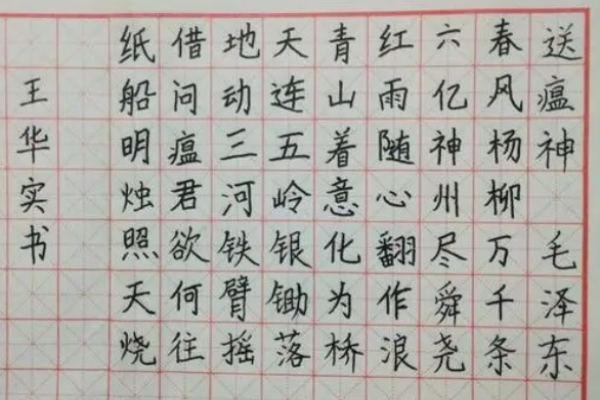 送瘟神 毛泽东
春风杨柳万千条
六亿神州尽舜尧
红雨随心翻作浪
青山着意化为桥
天连五岭银锄落
地动三河铁臂摇
借问瘟君欲何往
纸船明烛照天烧
王华实书